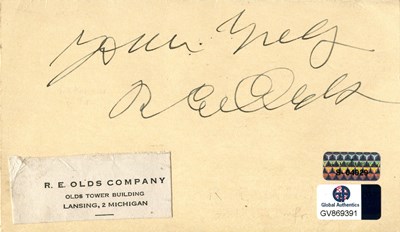 Yours Truly
R E Olds
R. E. OLDS COMPANY
OLDS TOWER BUILDING
LANSING, 2 MICHIGAN
Global Authentics
GV869391